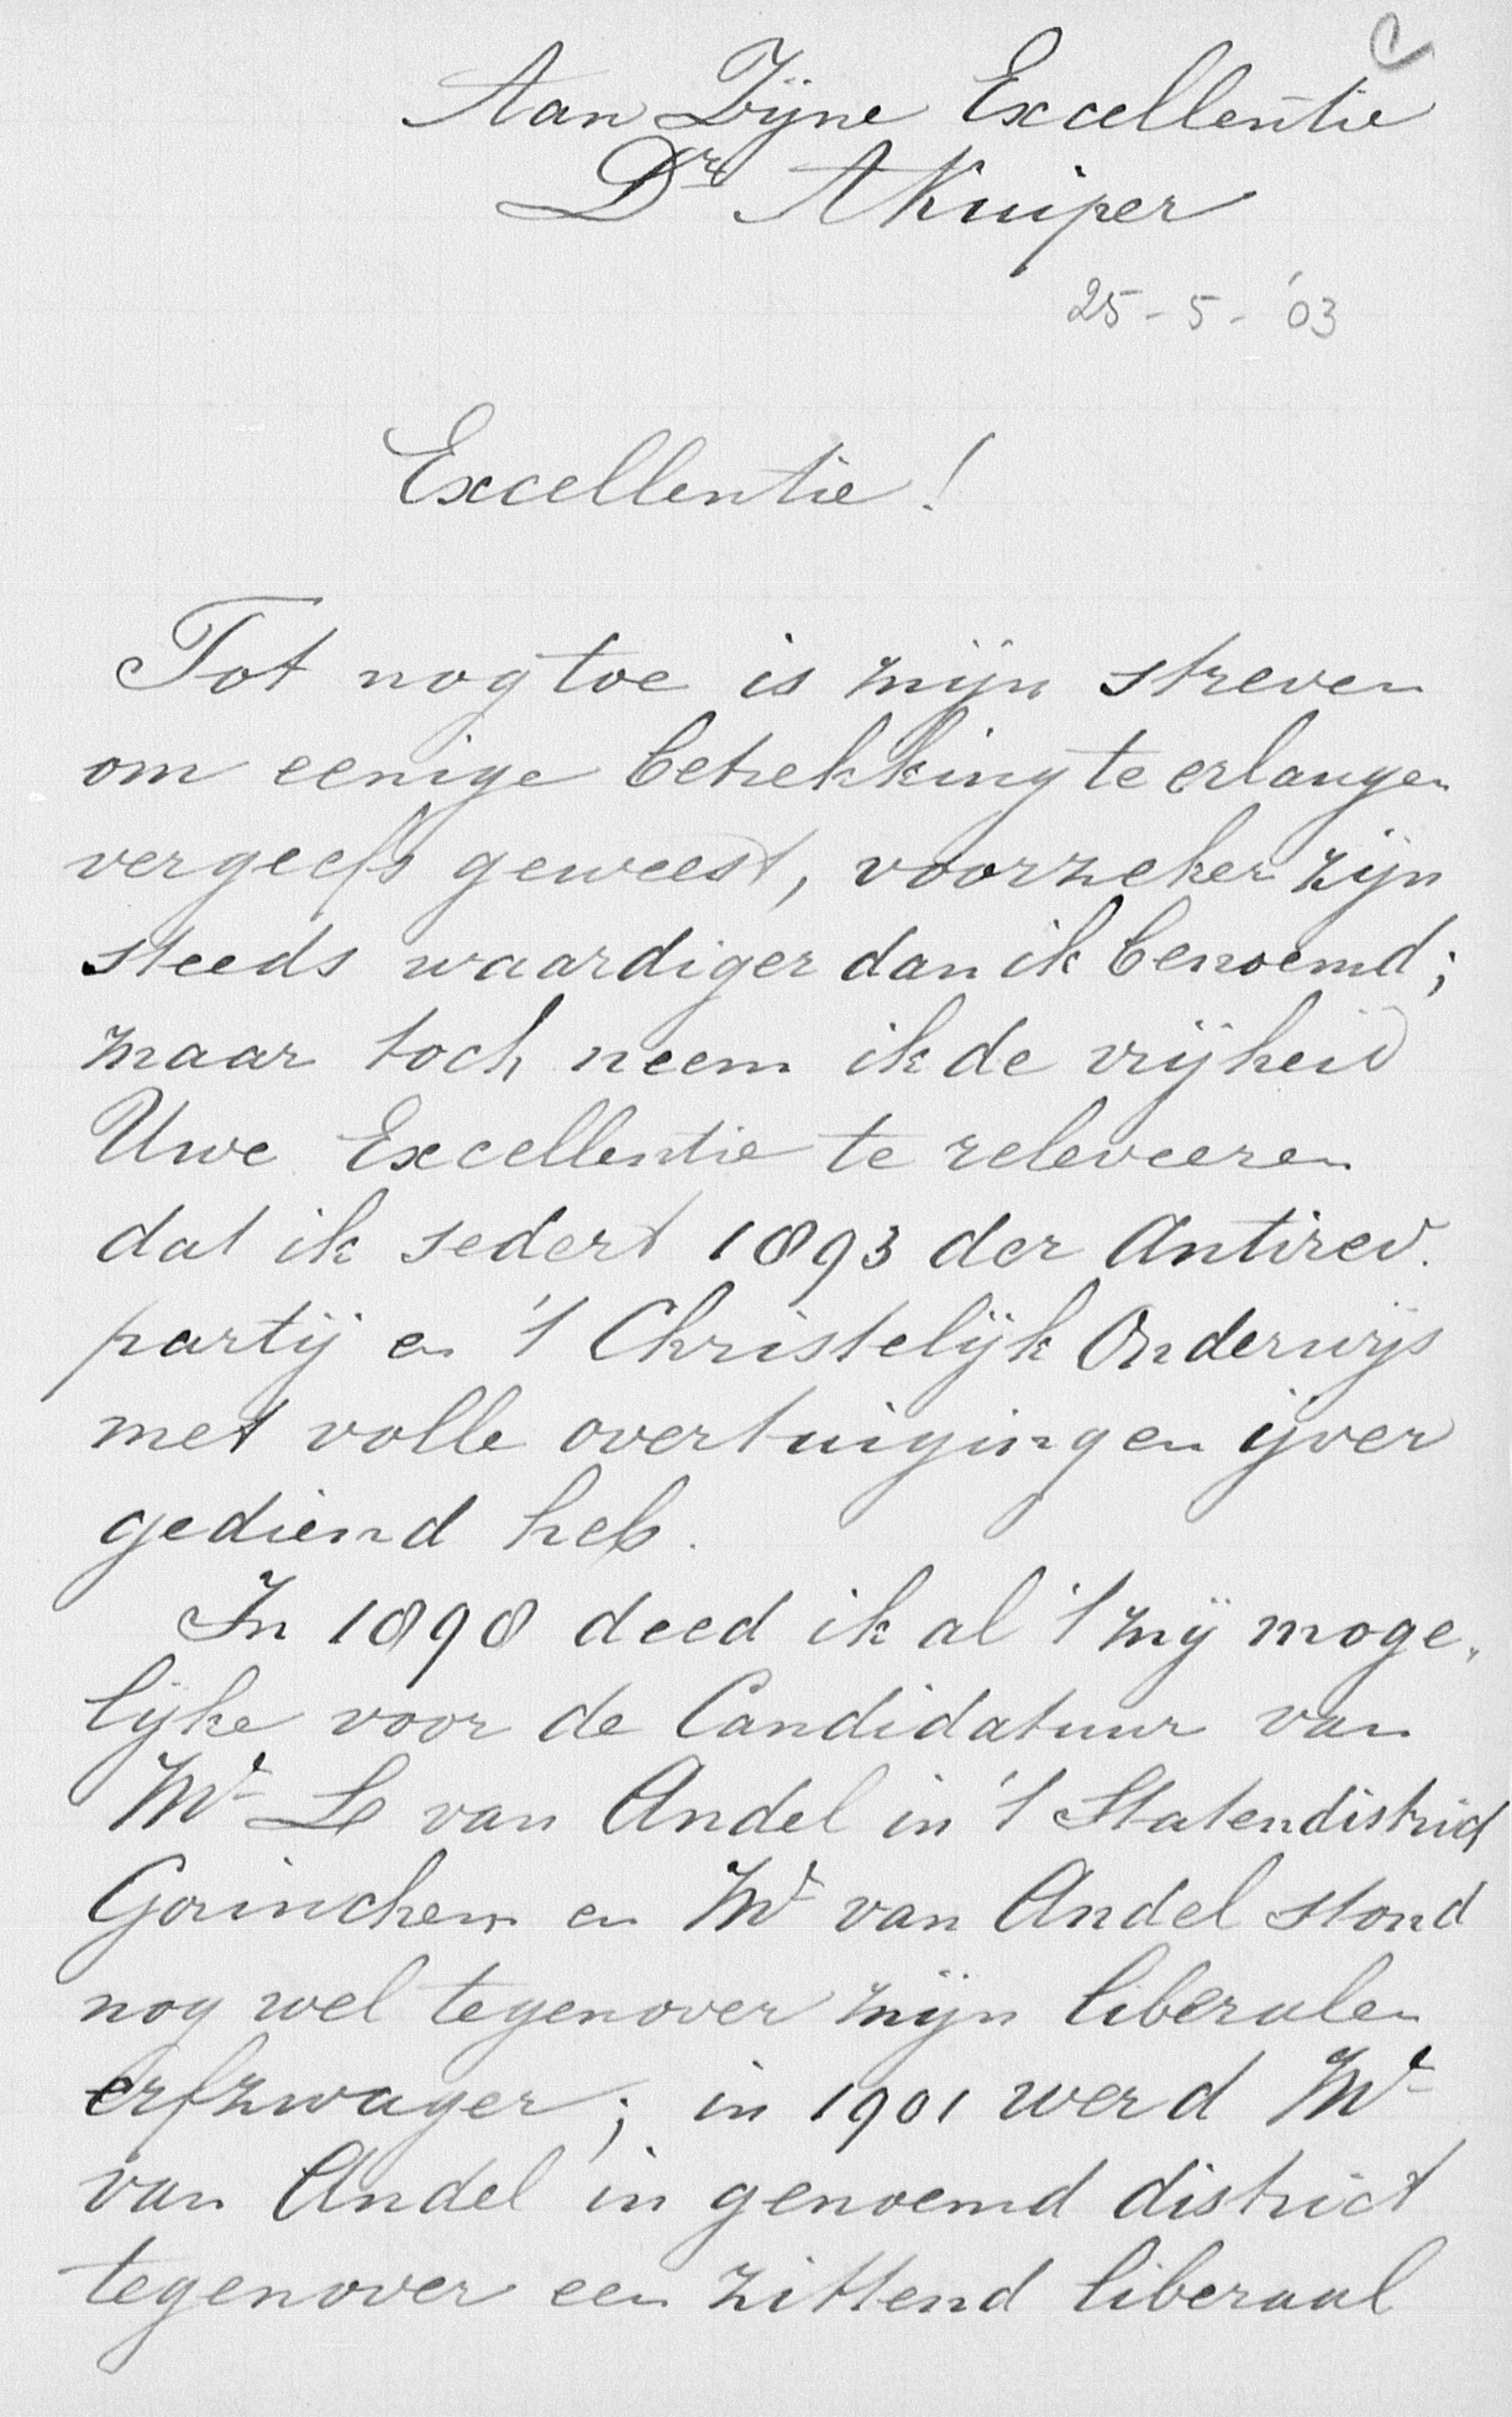 C
Aan Zijne Excellentie
Dr A Kuiper
25-5-'03
Excellentie!
Tot nog toe is mijn streven
om eenige betrekking te erlangen
vergeefs geweest, voorzeker zijn
steeds waardiger dan ik benoemd;
maar toch neem ik de vrijheid
Uwe Excellentie te releveeren
dat ik sedert 1893 der Antirev.
partij en 't Christelijk Onderwijs
met volle overtuiging en ijver
gediend heb.
In 1898 deed ik al 't mij moge„
lijke voor de Candidatuur van
Mr L van Andel in 't Statendistrict
Gorinchem en Mr van Andel stond
nog wel tegenover mijn liberalen
erfzwager; in 1901 werd Mr
van Andel in genoemd district
tegenover een zittend liberaal